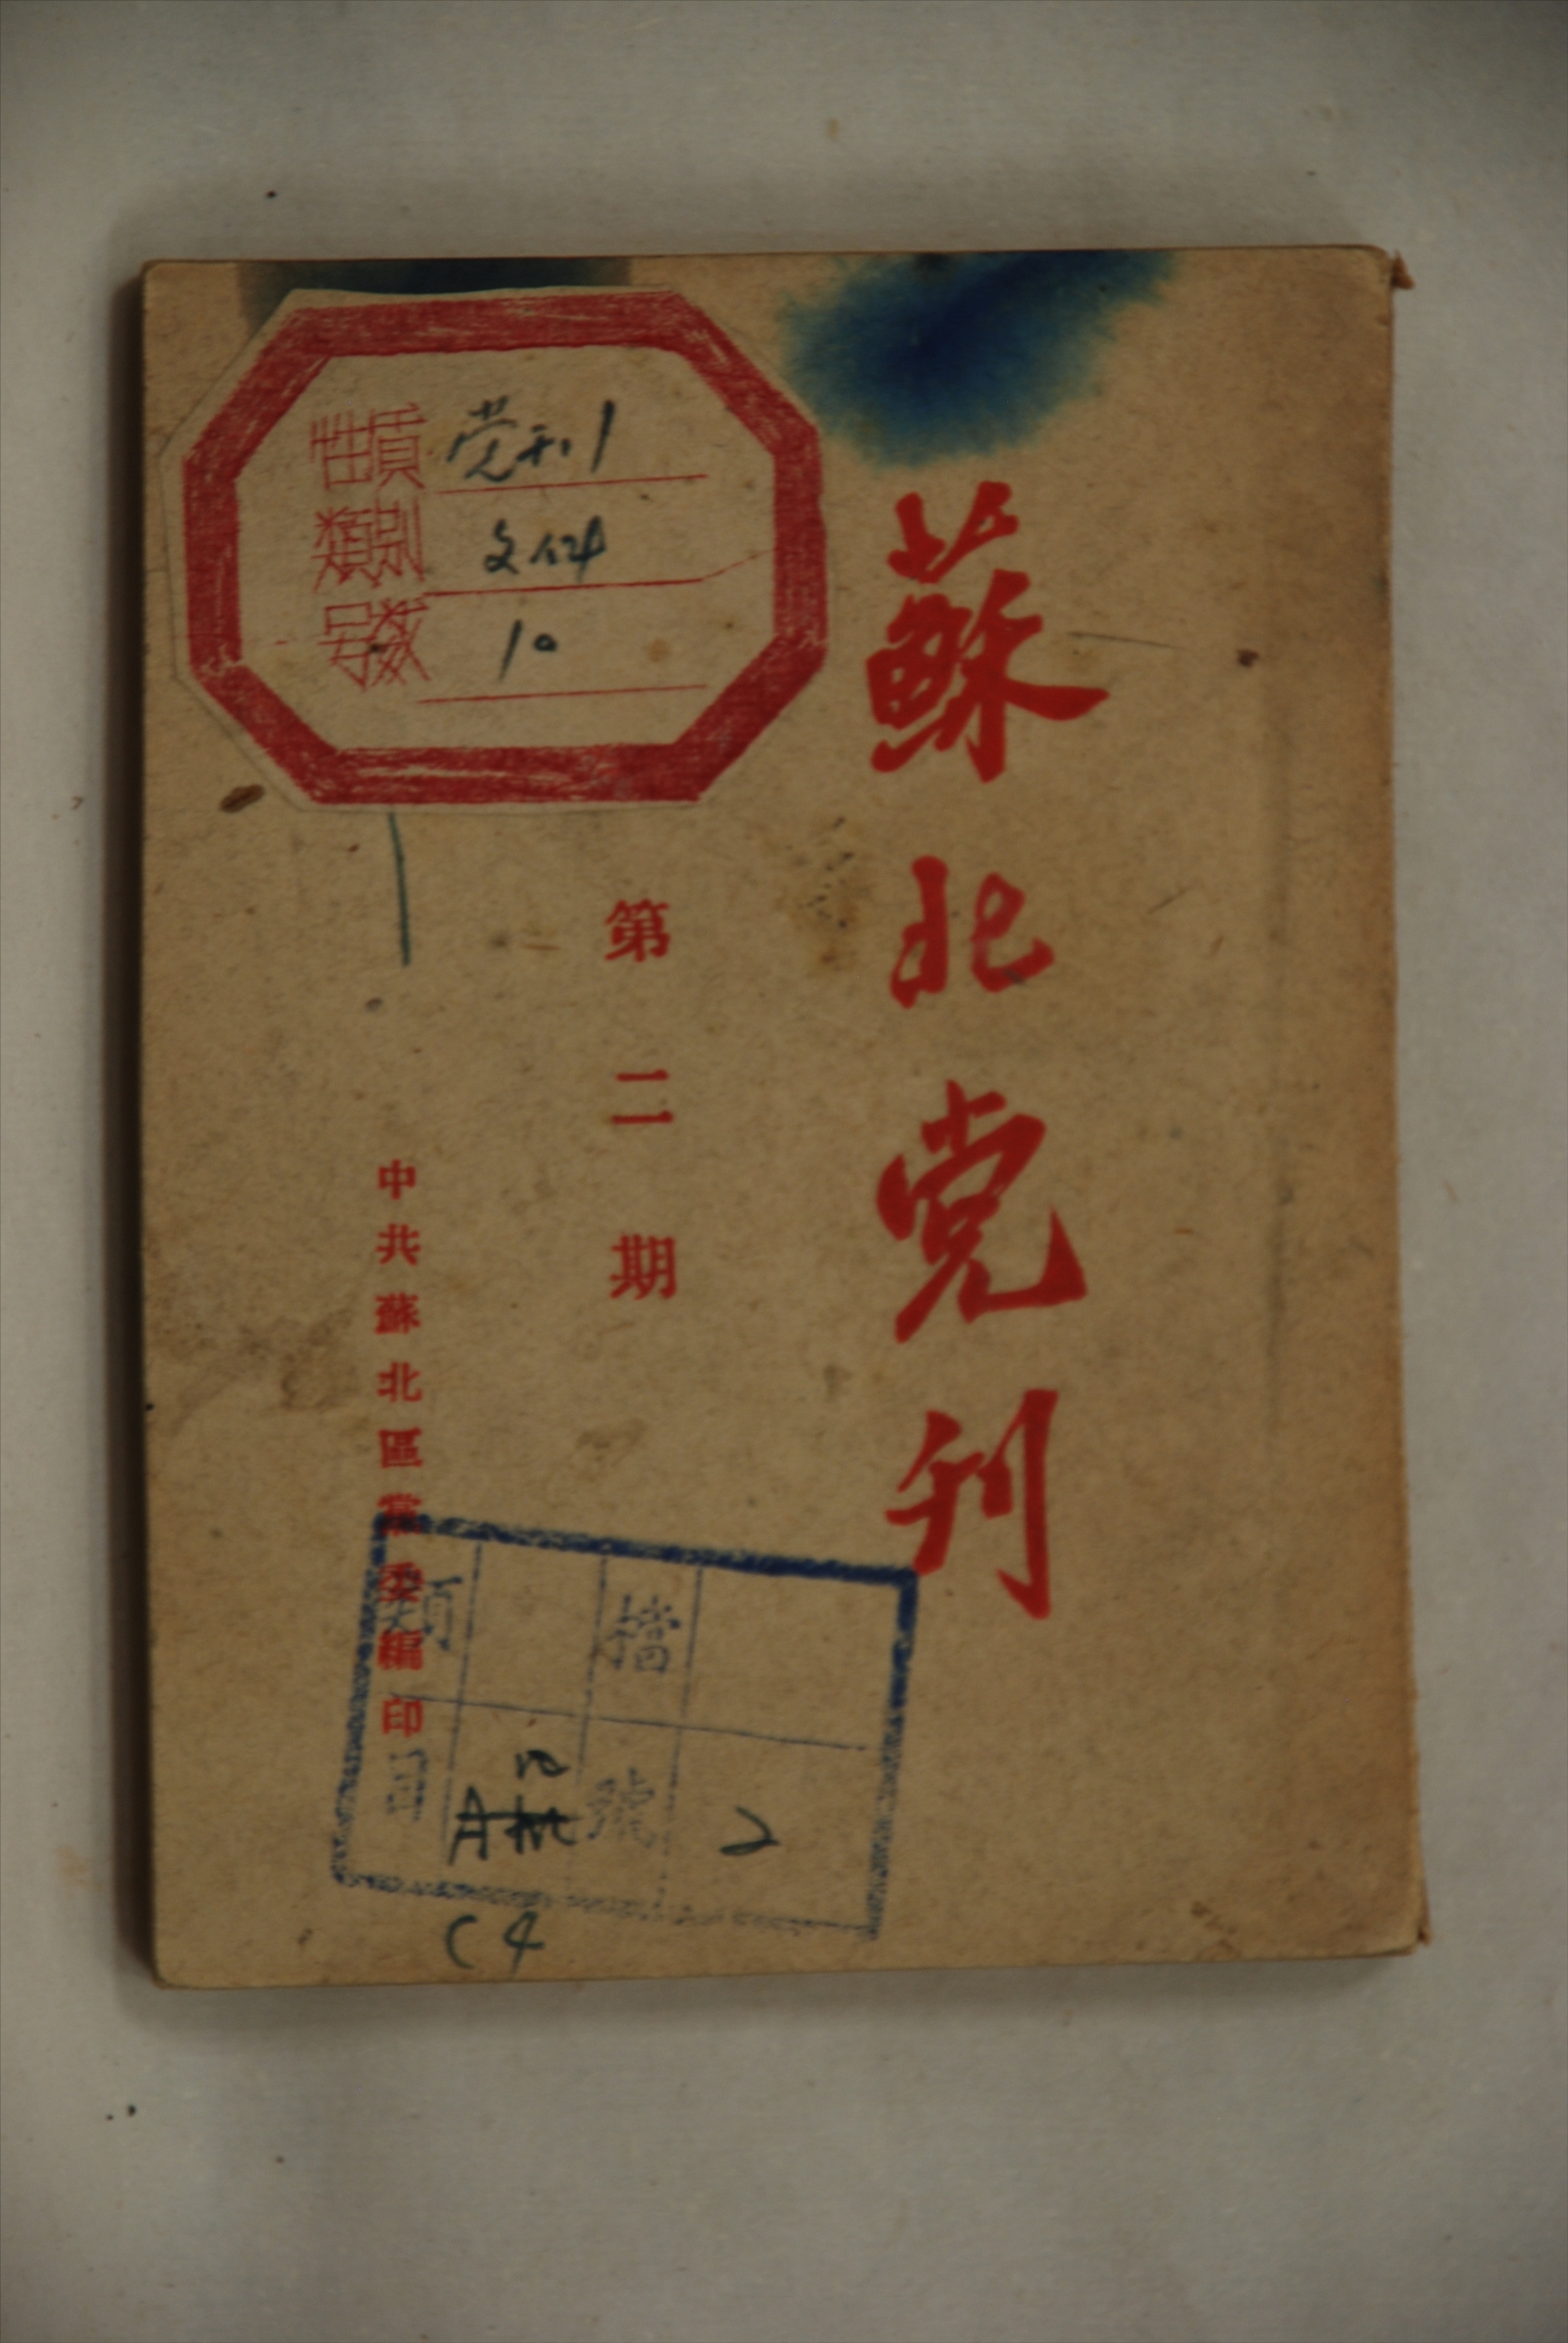 蘇北党刊
第二期
中共蘇北區黨委編印
性質 党刊
類別 文件
号數 10
類目
檔號 2
C4